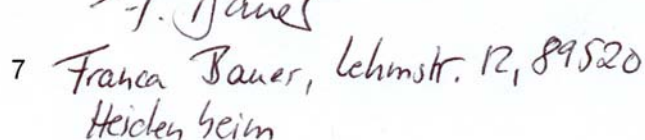 F. Bauer
7 Franca Bauer, Lehmstr. 12, 89520
Heidenheim